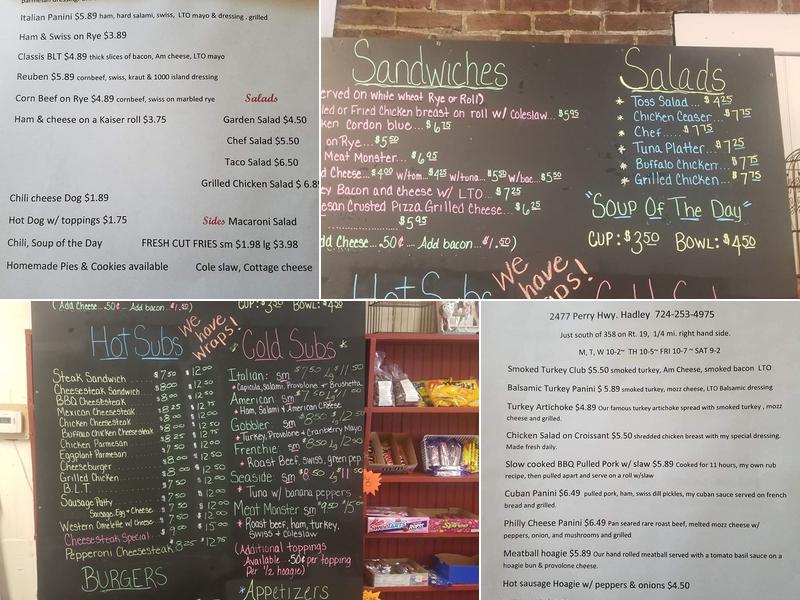 Italian Panini $5.89 ham, hard salami, swiss, LTO mayo & dressing . grilled
Ham & Swiss on Rye $3.89
Classis BLT $4.89 thick slices of bacon, Am cheese, LTO mayo
Reuben $5.89 cornbeef, swiss, kraut & 1000 island dressing
Corn Beef on Rye $4.89 cornbeef, swiss on marbled rye
Salads
Ham & cheese on a Kaiser roll $3.75
Garden Salad $4.50
Chef Salad $5.50
Taco Salad $6.50
Grilled Chicken Salad $ 6.8
Chili cheese Dog $1.89
Hot Dog w/ toppings $1.75
Sides Macaroni Salad
Chili, Soup of the Day
FRESH CUT FRIES sm $1.98 lg $3.98
Homemade Pies & Cookies available
Cole slaw, Cottage cheese
Sandwiches
erved on white wheat Rye or Roll)
led or Fried Chicken breast on roll w/ coleslaw... $5.95
ken Cordon blue... $6.75
on Rye... $5.50
Meat Monster... $6.95
d Cheese... $4.00 w/tom... $4.25 w/tuna... $5.50 w/bac... $5.50
ey Bacon and cheese w/ LTO... $7.25
esan Crusted Pizza Grilled Cheese... $6.25
$5.95
dd Cheese... .50¢ - Add bacon... $1.50)
Salads
* Toss Salad... $4.25
* Chicken Ceaser... $7.75
* Chef... $7.75
* Tuna Platter... $7.25
* Buffalo Chicken... $7.75
* Grilled Chicken... $7.75
"Soup Of The Day"
CUP: $3.50 BOWL: $4.50
Hot Subs
We have wraps!
(Add Cheese .50¢ Add bacon $1.50)
CUP: $3.50 BOWL: $4.50
Hot Subs
We have wraps!
Steak Sandwich $7.50 $12.00
Cheesesteak Sandwich $8.00 $12.50
BBQ Cheesesteak
Mexican Cheesesteak
Chicken Cheesesteak
Buffalo Chicken Cheesesteak
Chicken Parmesan
Eggplant Parmesan
Cheeseburger
Grilled Chicken
B.L.T.
Sausage Patty
Sausage, Egg + Cheese
Western Omelette w/ Cheese
Cheesesteak Special
Pepperoni Cheesesteak 8.25 $12.75
BURGERS
Cold Subs
Italian: sm $7.50 L $11.50
* Capicola, Salami, Provolone + Brushetta
American: sm $7.50 L $11.00
* Ham, Salami & American Cheese
Gobbler: sm $8.50 L $12.50
* Turkey, Provolone & Cranberry Mayo
Frenchie: sm $8.50 L $12.50
* Roast Beef, swiss, green pep
Seaside sm $8.50 L $11.50
* Tuna w/ banana peppers
Meat Monster sm $9.50 $15.00
* Roast beef, ham, turkey,
Swiss + coleslaw
(Additional toppings
Available .50¢ per topping
Per 1/2 hoagie)
*Appetizers
2477 Perry Hwy. Hadley 724-253-4975
Just south of 358 on Rt. 19, 1/4 mi. right hand side.
M, T, W 10-2~ TH 10-5~ FRI 10-7 ~ SAT 9-2
Smoked Turkey Club $5.50 smoked turkey, Am Cheese, smoked bacon LTO
Balsamic Turkey Panini $ 5.89 smoked turkey, mozz cheese, LTO Balsamic dressing
Turkey Artichoke $4.89 Our famous turkey artichoke spread with smoked turkey , mozz
cheese and grilled.
Chicken Salad on Croissant $5.50 shredded chicken breast with my special dressing.
Made fresh daily.
Slow cooked BBQ Pulled Pork w/ slaw $5.89 Cooked for 11 hours, my own rub
recipe, then pulled apart and serve on a roll w/slaw
Cuban Panini $6.49 pulled pork, ham, swiss dill pickles, my cuban sauce served on french
bread and grilled.
Philly Cheese Panini $6.49 Pan seared rare roast beef, melted mozz cheese w/
peppers, onion, and mushrooms and grilled
Meatball hoagie $5.89 Our hand rolled meatball served with a tomato basil sauce on a
hoagie bun & provolone cheese.
Hot sausage Hoagie w/ peppers & onions $4.50